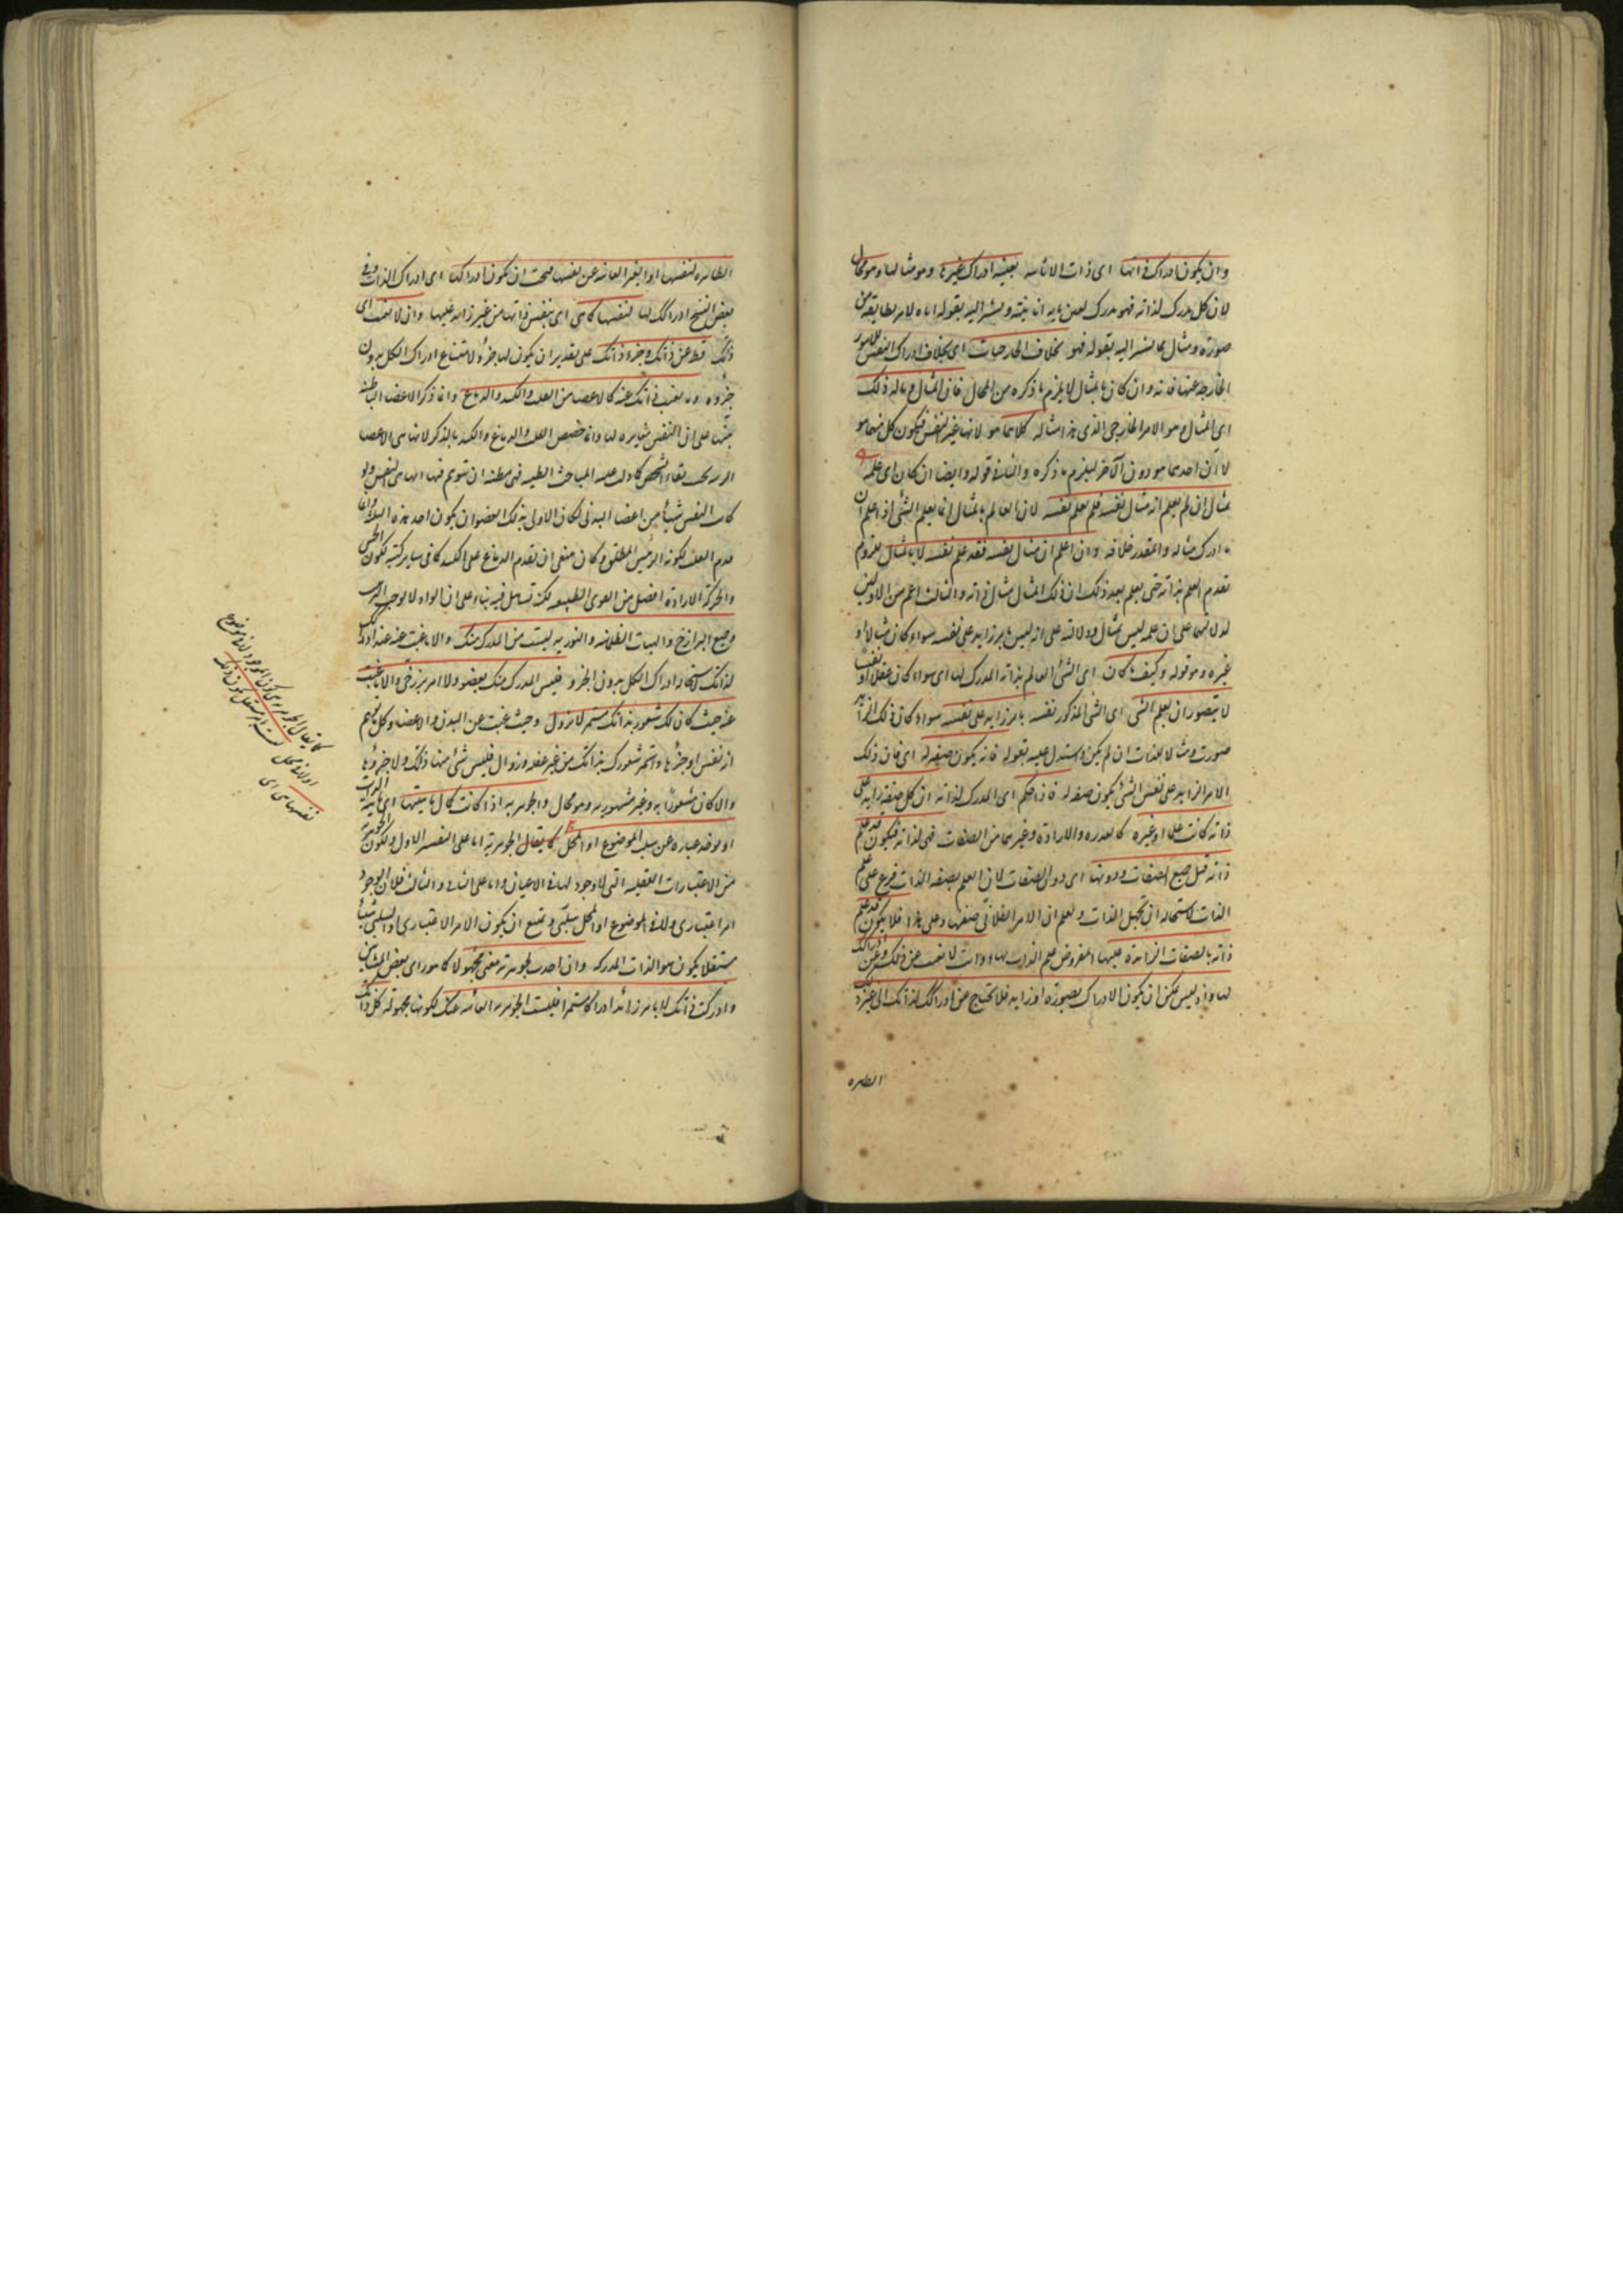 وان يكون ادراك ذاتها اى ذات الانائية بعينه ادراك غيرها وهو مثالها وهو محال
لان كل مدرك لذاته فهو مدرك لعين ما به انائيته ويشير اليه بقوله انا لا لامر يطابقه من
صورة ومثال مما يشير اليه بقوله هو بخلاف الخارجيات اى بخلاف ادراك النفس للامور
الخارجة عنها فانه وان كان بالمثال لا يلزم ما ذكره من المحال فان المثال وما له ذلك
اى المثال وهو الامر الخارجى الذى هذا مثاله كلاهما هو لانها غير النفس فيكون كل منهما هو
لا ان احدهما هو دون الآخر ليلزم ما ذكره والثانى قوله وايضا ان كان اى علمه
بمثال ان لم يعلم انه مثال لنفسه فلم يعلم نفسه لان العالم بالمثال انما يعلم الشئ اذا علم ان
ما ادرك مثاله والمقدر خلافه وان علم ان مثال نفسه فقد علم نفسه لا بالمثال للزوم
تقدم العلم بذاته حتى يعلم بعد ذلك ان ذلك المثال مثال ذاته والثالث اعم من الاولين
لدلالتهما على ان علمه ليس بمثال ودلالته على انه ليس بامر زايد على نفسه سواء كان مثالا او
غيره وهو قوله وكيف ما كان اى الشئ العالم بذاته المدرك لها اى سواء كان عقلا او نفسا
لا يتصور ان يعلم الشئ اى الشئ المذكور نفسه بامر زايد على نفسه سواء كان ذلك الزايد
صورة ومثالا للذات ان لم يكن واستدل عليه بقوله فانه يكون صفة له اى فان ذلك
الامر الزايد على نفس الشئ يكون صفة له فاذا حكم اى المدرك لذاته ان كل صفة زايدة على
ذاته كانت علما او غيره كالقدرة والارادة وغيرهما من الصفات فهى لذاته فيكون قد علم
ذاته قبل جميع الصفات ودونها اى دون الصفات لان العلم بصفة الذات فرع على علم
الذات لاستحالة ان تجهل الذات ويعلم ان الامر الفلانى صفتها وعلى هذا فلا يكون قد علم
ذاته بالصفات الزايدة عليها المفروض علم الذات بها وانت لا تغيب عن ذاتك وعن ادراكك
لها واذ ليس يمكن ان يكون الادراك بصورة او زايد فلا تحتاج من ادراكك لذاتك الى غير ذاتك
الظاهرة
الظاهرة لنفسها او الغير الغائبة عن نفسها فيجب ان يكون ادراكها اى ادراك الذات وفى
بعض النسخ ادراكك لها لنفسها كما هى اى بنفس ذاتها من غير زايد عليها وان لا تغيب اى
ذاتك قط عن ذاتك وجزء ذاتك على تقدير ان يكون لها جزؤ لامتناع ادراك الكل بدون
جزؤه وما تغيب ذاتك عنه كالاعضا من القلب والكبد والدماغ وانما ذكر الاعضا الباطنة
تنبيها على ان النفس مغايرة لها وانما خصص القلب والدماغ والكبد بالذكر لانها هى الاعضا
الرئيسة بحسب بقاء الشخص كما دلت عليه المباحث الطبية فهى مظنة ان يتوهم فيها انها هى النفس ولو
كانت النفس شيأ من اعضا البدن لكان الاولى بذلك العضو ان يكون احد هذه الثلثة وانما
قدم القلب لكونه الرئيس المطلق وكان ينبغى ان يقدم الدماغ على الكبد كما فى ساير كتبه لكون الحس
والحركة الارادية افضل من القوى الطبيعية لكنه تساهل فيه بناء على ان الواو لا يوجب الترتيب
وجميع البرازخ والهيئات الظلمانية والنورية ليست من المدرك منك والا ما غبت عنه عند ادراكك
لذاتك لاستحالة ادراك الكل بدون الجزؤ فليس المدرك منك بعضو ولا امر برزخى والا ما غبت
عنه حيث كان لك شعور بذاتك مستمر لا يزول وحيث غبت عن البدن والاعضاء وكل ما توهم
انه نفس او جزؤها واستمر شعورك بذاتك من غير غفلة وزوال فليس شئ منها ذاتك ولا جزؤها
والا كان مشعورا به وغير مشهور به وهو محال والجوهرية اذا كانت كمال ماهيتها اى ماهية الذات
او يوخذ عبارة عن سلب الموضوع او المحل كما يقال الجوهرية اما على التفسير الاول فلكون الجوهرية
من الاعتبارات العقلية التى لا وجود لها فى الاعيان واما على الثانى والثالث فلان الوجود
امر اعتبارى ولا فى الموضوع او المحل سلبى ويمتنع ان يكون الامر الاعتبارى والسلبى شيأ
مستقلا يكون هو الذات المدركة وان اخذت الجوهرية معنى مجهولا كما هو راى بعض المشايين
وادركت ذاتك لا بامر زائد ادراكا مستمرا فليست الجوهرية الغائبة عنك لكونها مجهولة كل ذاتك
كما يقال الجوهر هو كون الموجود لا فى موضوع
او لا فى محل ليست بامر مستقل يكون ذاتك
نفسها هى اى